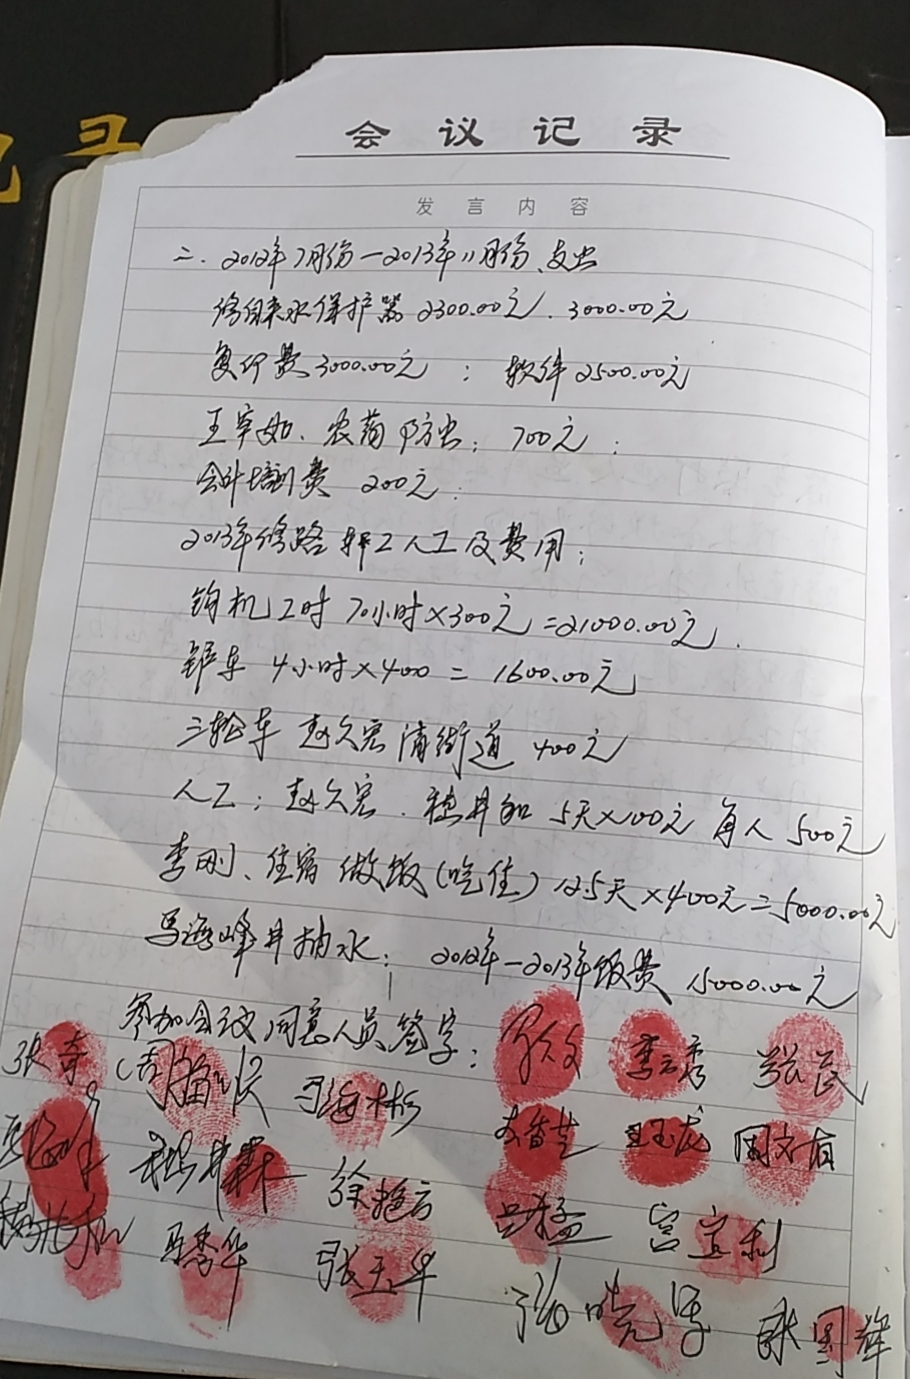 记录
会议记录
发言内容
二.2012年7月份—2013年11月份、支出
修自来水保护器2300.00元.3000.00元
复印费3000.00元;软件2500.00元
王宰如、农药防虫;700元;
会计培训费 200元;
2013年修路 人工及费用;
钩机工时 70小时×300元=21000.00元.
铲车 4小时×400=1600.00元
三轮车 赵久宏清街道 400元
人工;赵久宏.穗井和 5天×100元 每人500元
李刚、住宿做饭(吃住)12.5天×400元=5000.00元
马海峰井抽水; 2012年—2013年饭费 15000.00元
参加会议同意人员签字:
李云秀
张奇
马海彬
王玉龙 周文有
徐艳云
吕猛 宫宝利
马秀华 张玉华
张晓